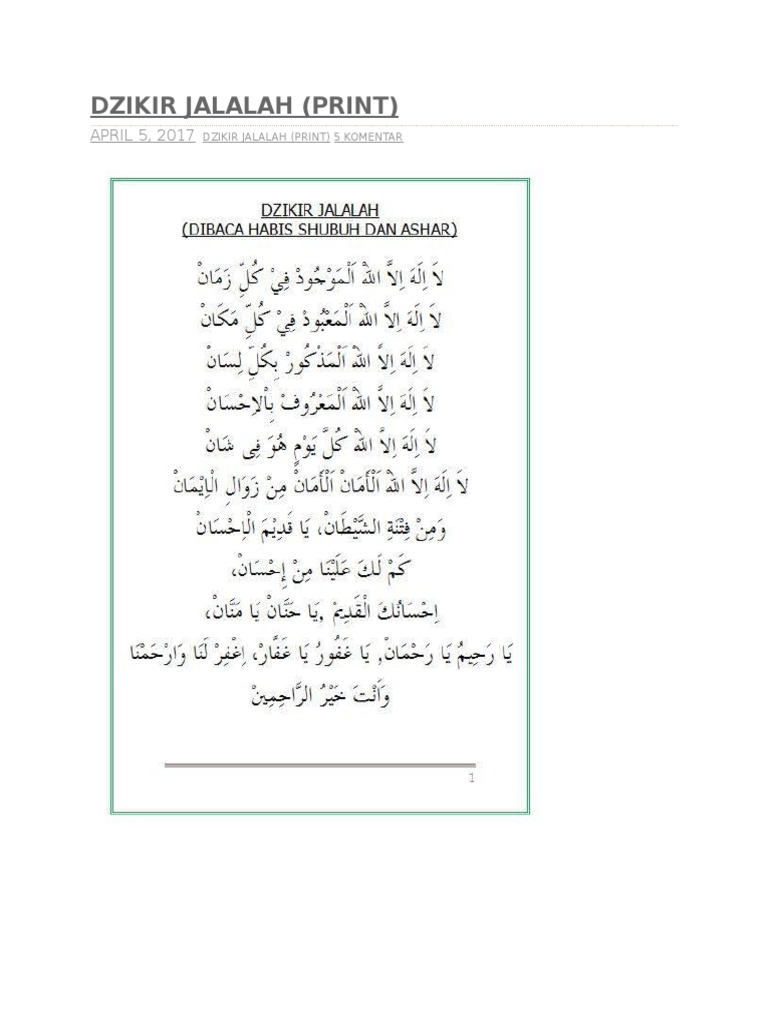 DZIKIR JALALAH (PRINT)
APRIL 5, 2017 DZIKIR JALALAH (PRINT) 5 KOMENTAR
DZIKIR JALALAH
(DIBACA HABIS SHUBUH DAN ASHAR)
لاَ اِلَهَ اِلاَّ اللهْ اَلْمَوْجُودْ فِيْ كُلِّ زَمَانْ
لاَ اِلَهَ اِلاَّ اللهْ اَلْمَعْبُودْ فِيْ كُلِّ مَكَانْ
لاَ اِلَهَ اِلاَّ اللهْ اَلْمَذْكُورْ بِكُلِّ لِسَانْ
لاَ اِلَهَ اِلاَّ اللهْ اَلْمَعْرُوفْ بِاْلاِحْسَانْ
لاَ اِلَهَ اِلاَّ اللهْ كُلَّ يَوْمٍ هُوَ فِى شَانْ
لاَ اِلَهَ اِلاَّ اللهْ اَلْأَمَانْ اَلْأَمَانْ مِنْ زَوَالِ الْاِيْمَانْ
وَمِنْ فِتْنَةِ الشَّيْطَانْ، يَا قَدِيْمَ الْاِحْسَانْ
كَمْ لَكَ عَلَيْنَا مِنْ إِحْسَانْ،
اِحْسَانُكَ الْقَدِيمْ ,يَا حَنَّانْ يَا مَنَّانْ،
يَا رَحِيمُ يَا رَحْمَانْ, يَا غَفُورُ يَا غَفَّارْ، اِغْفِرْ لَنَا وَارْحَمْنَا
وَاَنْتَ خَيْرُ الرَّاحِمِينْ
1